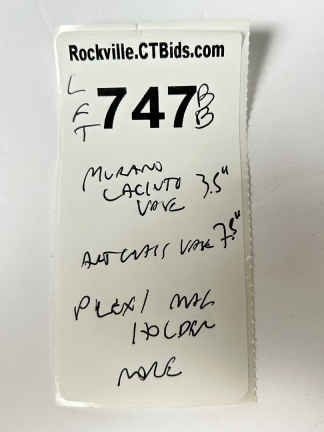 Rockville.CTBids.com
L
F
T
747
B
B
MURANO
LACIUTO 3.5"
VAVE
ART GLASS VASE 7.5"
PLEXI MAG
HOLDER
MORE